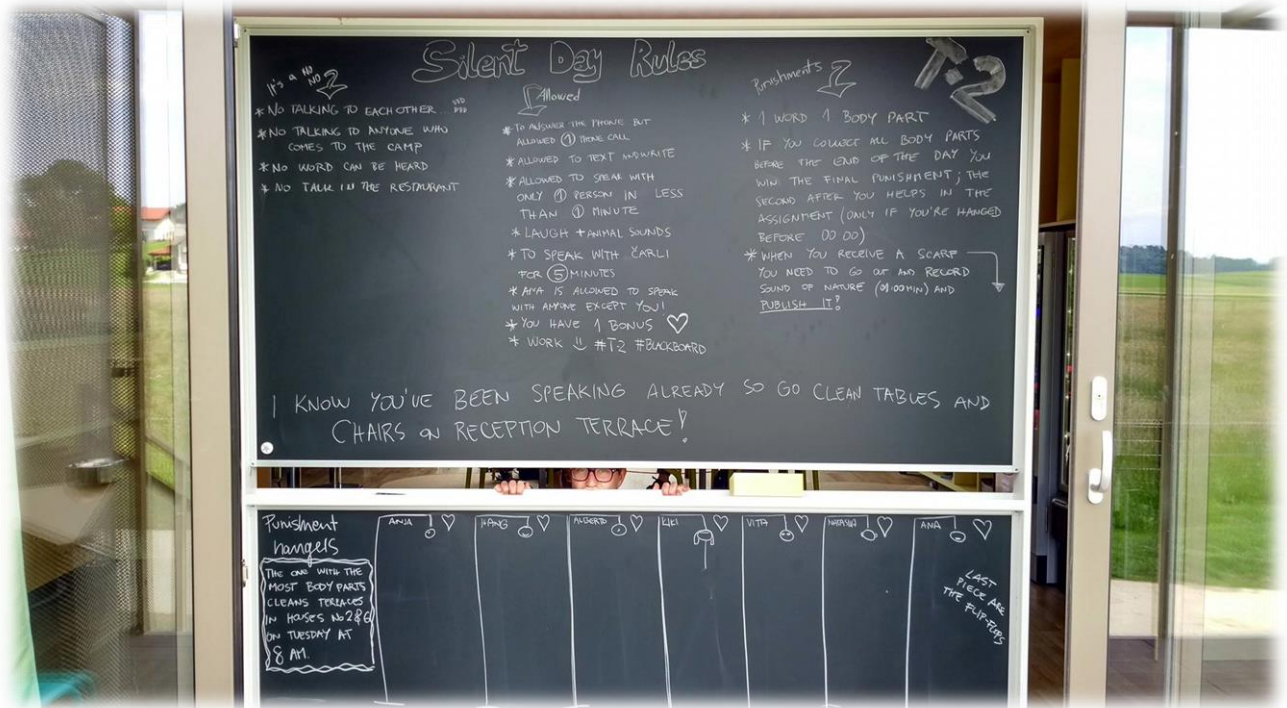 Silent Day Rules
T-2
It's a NO NO
* NO TALKING TO EACH OTHER...
* NO TALKING TO ANYONE WHO
COMES TO THE CAMP
* NO WORD CAN BE HEARD
* NO TALK IN THE RESTAURANT
Allowed
* TO ANSWER THE PHONE BUT
ALLOWED 1 PHONE CALL
* ALLOWED TO TEXT AND WRITE
* ALLOWED TO SPEAK WITH
ONLY 1 PERSON IN LESS
THAN 1 MINUTE
* LAUGH + ANIMAL SOUNDS
* TO SPEAK WITH ČARLI
FOR 5 MINUTES
* ANA IS ALLOWED TO SPEAK
WITH ANYONE EXCEPT YOU!
* YOU HAVE 1 BONUS ♡
* WORK #T-2 #BLACKBOARD
Punishments
* 1 WORD 1 BODY PART
* IF YOU COLLECT ALL BODY PARTS
BEFORE THE END OF THE DAY YOU
WIN THE FINAL PUNISHMENT; THE
SECOND AFTER YOU HELPS IN THE
ASSIGNMENT (ONLY IF YOU'RE HANGED
BEFORE 00:00)
* WHEN YOU RECEIVE A SCARF
YOU NEED TO GO OUT AND RECORD
SOUND OF NATURE (01:00MIN) AND
PUBLISH IT!
I KNOW YOU'VE BEEN SPEAKING ALREADY SO GO CLEAN TABLES AND
CHAIRS ON RECEPTION TERRACE!
Punishment
hangels
THE ONE WITH THE
MOST BODY PARTS
CLEANS TERRACES
IN HOUSES No 2 & 6
ON TUESDAY AT
8 AM.
ANJA
HANG
ALBERTO
KIKI
VITA
NATASHA
ANA
LAST
PIECE ARE
THE FLIP-FLOPS